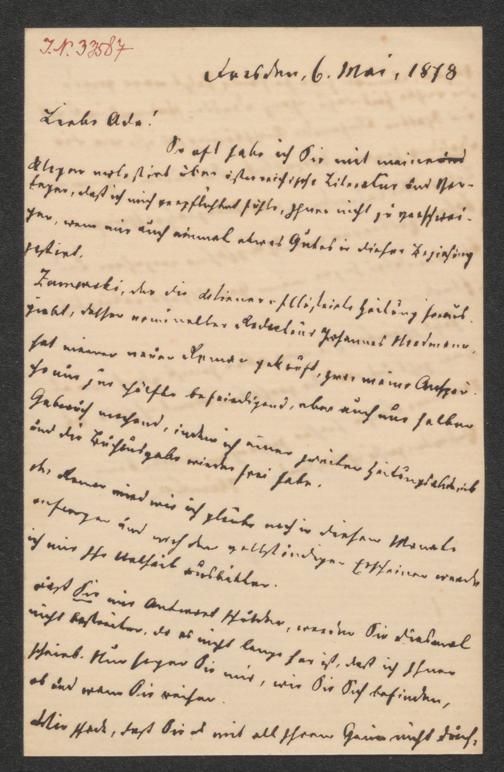 J.N. 33587
Dresden, 6. Mai, 1878
Liebe Ada!
So oft habe ich Sie mit meinen
Klagen belästigt über österreichische Literatur und Ver-
leger, daß ich mich verpflichtet fühle, Ihnen nicht zu verschwei-
gen, wenn mir auch einmal etwas Gutes in dieser Beziehung
passirt.
Zamarski, der die Wiener Illustrirte Zeitung heraus-
giebt, deren nomineller Redacteur Johannes Nordmann,
hat meinen neuen Roman gekauft, zwar meine Ansprü-
che nur zur Hälfte befriedigend, aber auch nur halben
Gebrauch machend, indem ich einen zweiten Zeitungsabdruck
und die Buchausgabe wieder frei habe.
Der Roman wird wie ich glaube noch in diesem Monate
anfangen und nach dem vollständigen Erscheinen werde
ich mir Ihr Urtheil ausbitten.
Daß Sie mir Antwort schulden, werden Sie diesmal
nicht bestreiten, da es nicht lange her ist, daß ich Ihnen
schrieb. Nun sagen Sie mir, wie Sie Sich befinden,
ob und wann Sie reisen.
Wie schade, daß Sie mit all Ihrem Genie nicht durch-